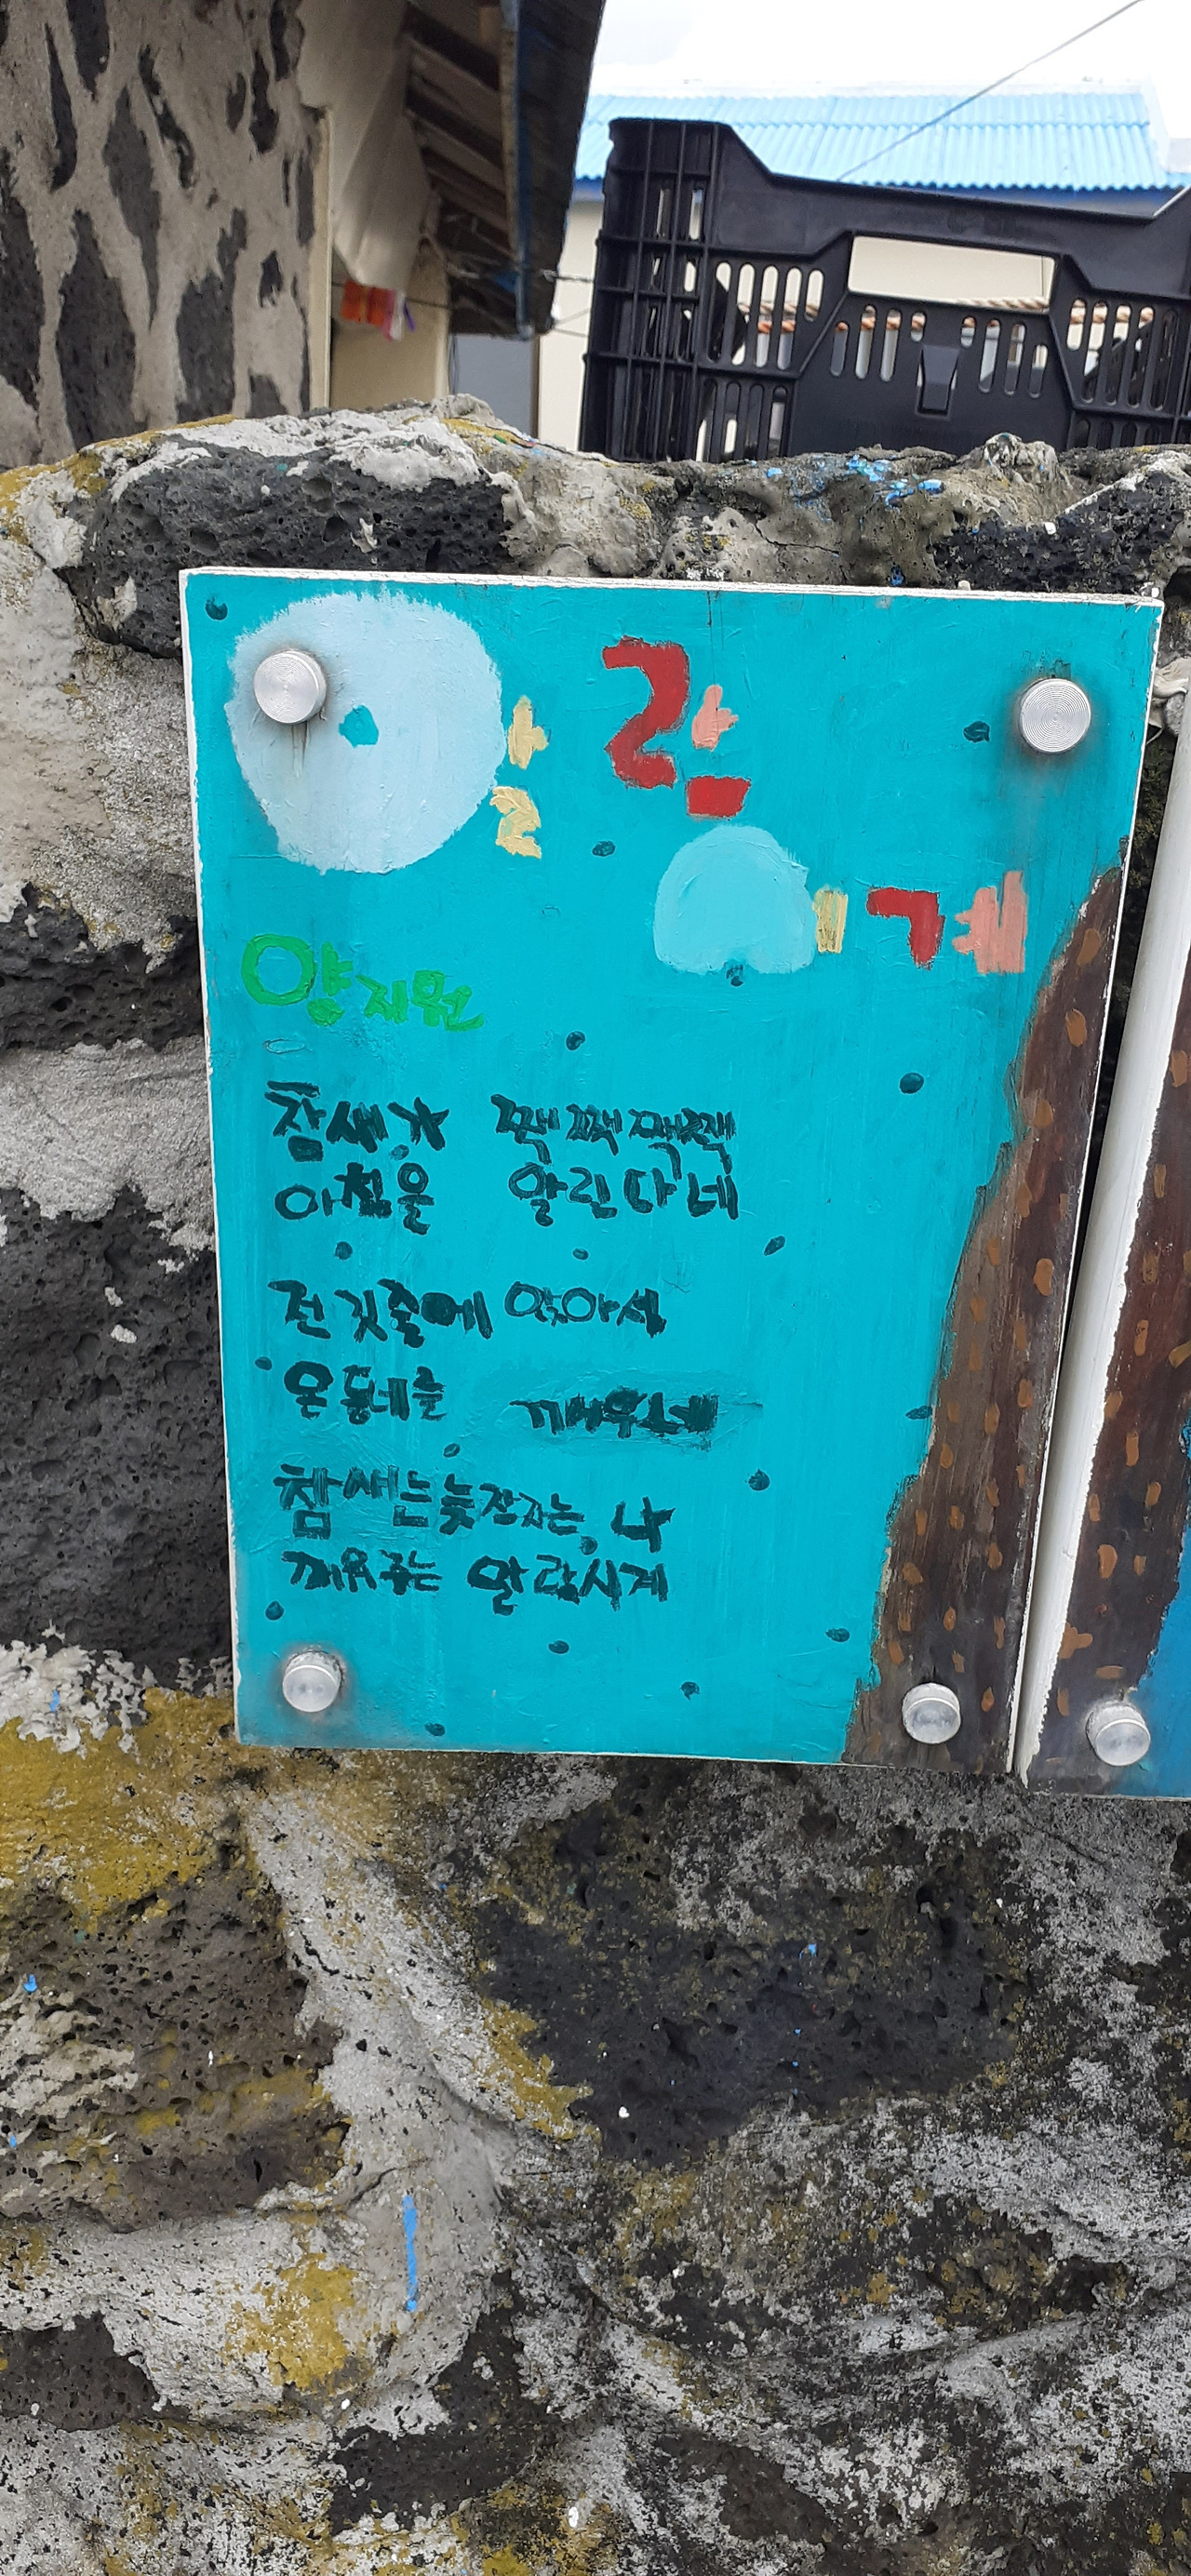 알람
시계
양지원
참새가 짹짹짹짹
아침을 알린다네
전깃줄에 앉아서
온동네를 깨우네
참새는늦잠자는 나
깨워주는 알람시계